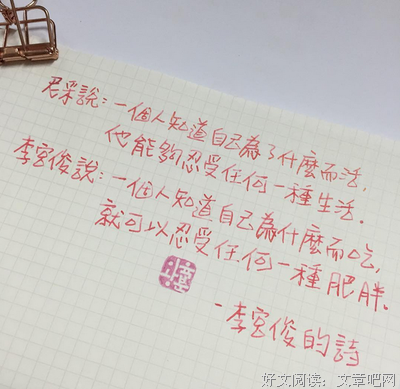 君采說：一個人知道自己為了什麼而活，
他能夠忍受任何一種生活．
李宮俊說：一個人知道自己為什麼而吃，
就可以忍受任何一種肥胖．
-李宮俊的詩
好文阅读：文章吧网